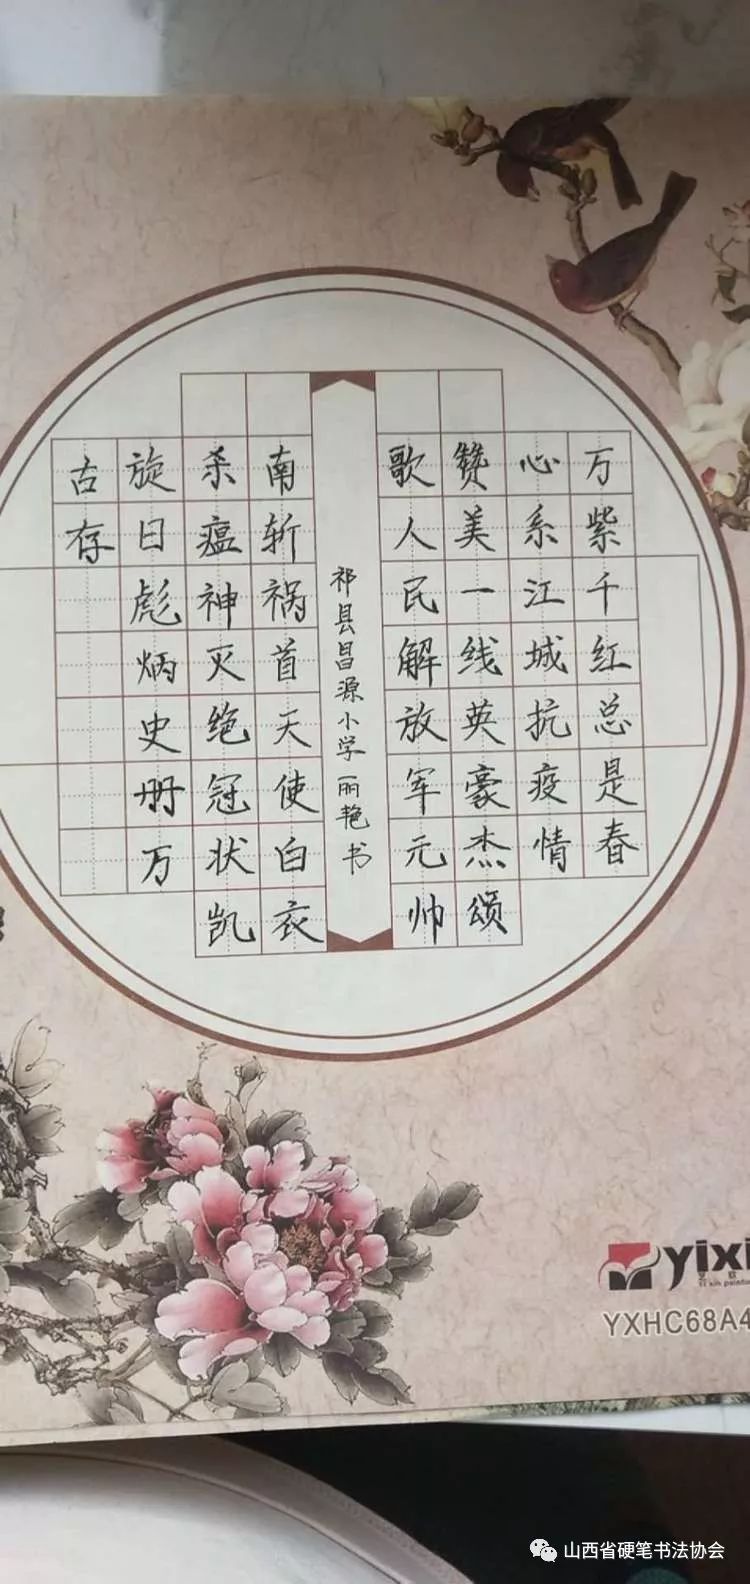 万紫千红总是春
心系江城抗疫情
赞美一线英豪杰颂
歌人民解放军元帅
祁县昌源小学丽艳书
南斩祸首天使白衣
杀瘟神灭绝冠状凯
旋日彪炳史册万
古存
yixi
YXHC68A4
山西省硬笔书法协会